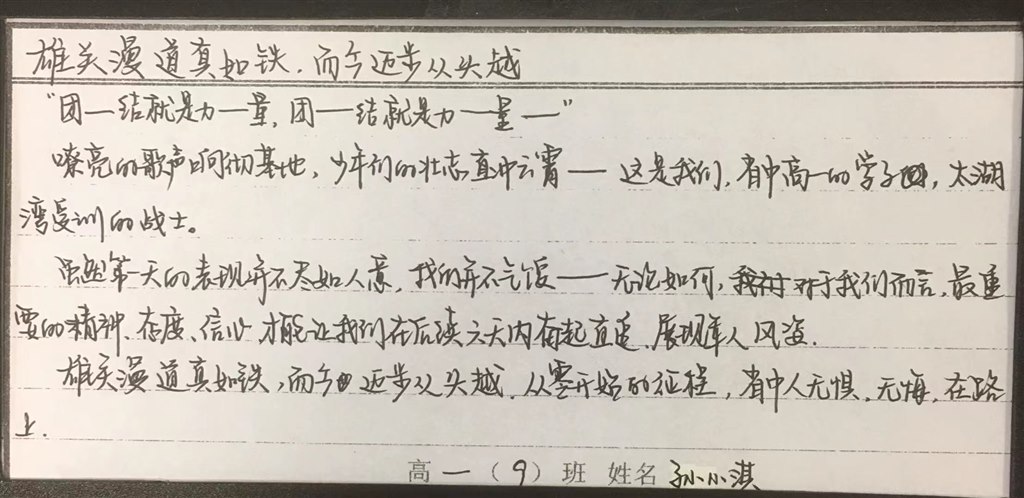 雄关漫道真如铁，而今迈步从头越
“团—结就是力—量，团—结就是力—量—”
嘹亮的歌声响彻基地，少年们的壮志直冲云霄——这是我们，省中高一的学子，太湖
湾受训的战士。
虽然第一天的表现并不尽如人意，我们并不气馁——无论如何，对于我们而言，最重
要的精神、态度、信心才能让我们在后续六天内奋起直追，展现军人风姿.
雄关漫道真如铁，而今迈步从头越，从零开始的征程，省中人无惧，无悔，在路
上.
高一（9）班 姓名 孙小淇